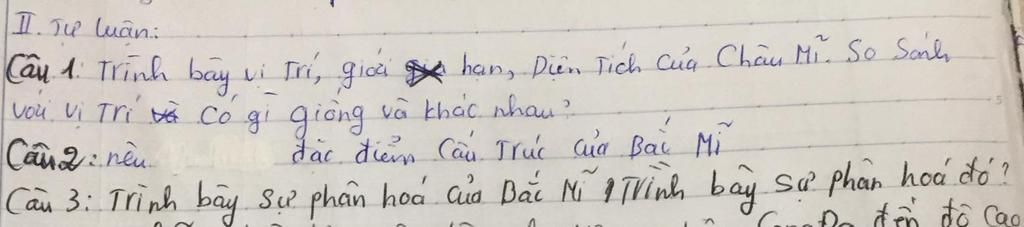 II. Tự luận:
Câu 1: Trình bày vị trí, giới hạn, Diện Tích của Châu Mĩ. So Sánh
với vị Trí có gì giống và khác nhau?
Câu 2: nêu đặc điểm Cấu Trúc của Bắc Mĩ
Câu 3: Trình bày sự phân hoá của Bắc Mĩ, Trình bày sự phân hoá đó?
đến độ Cao